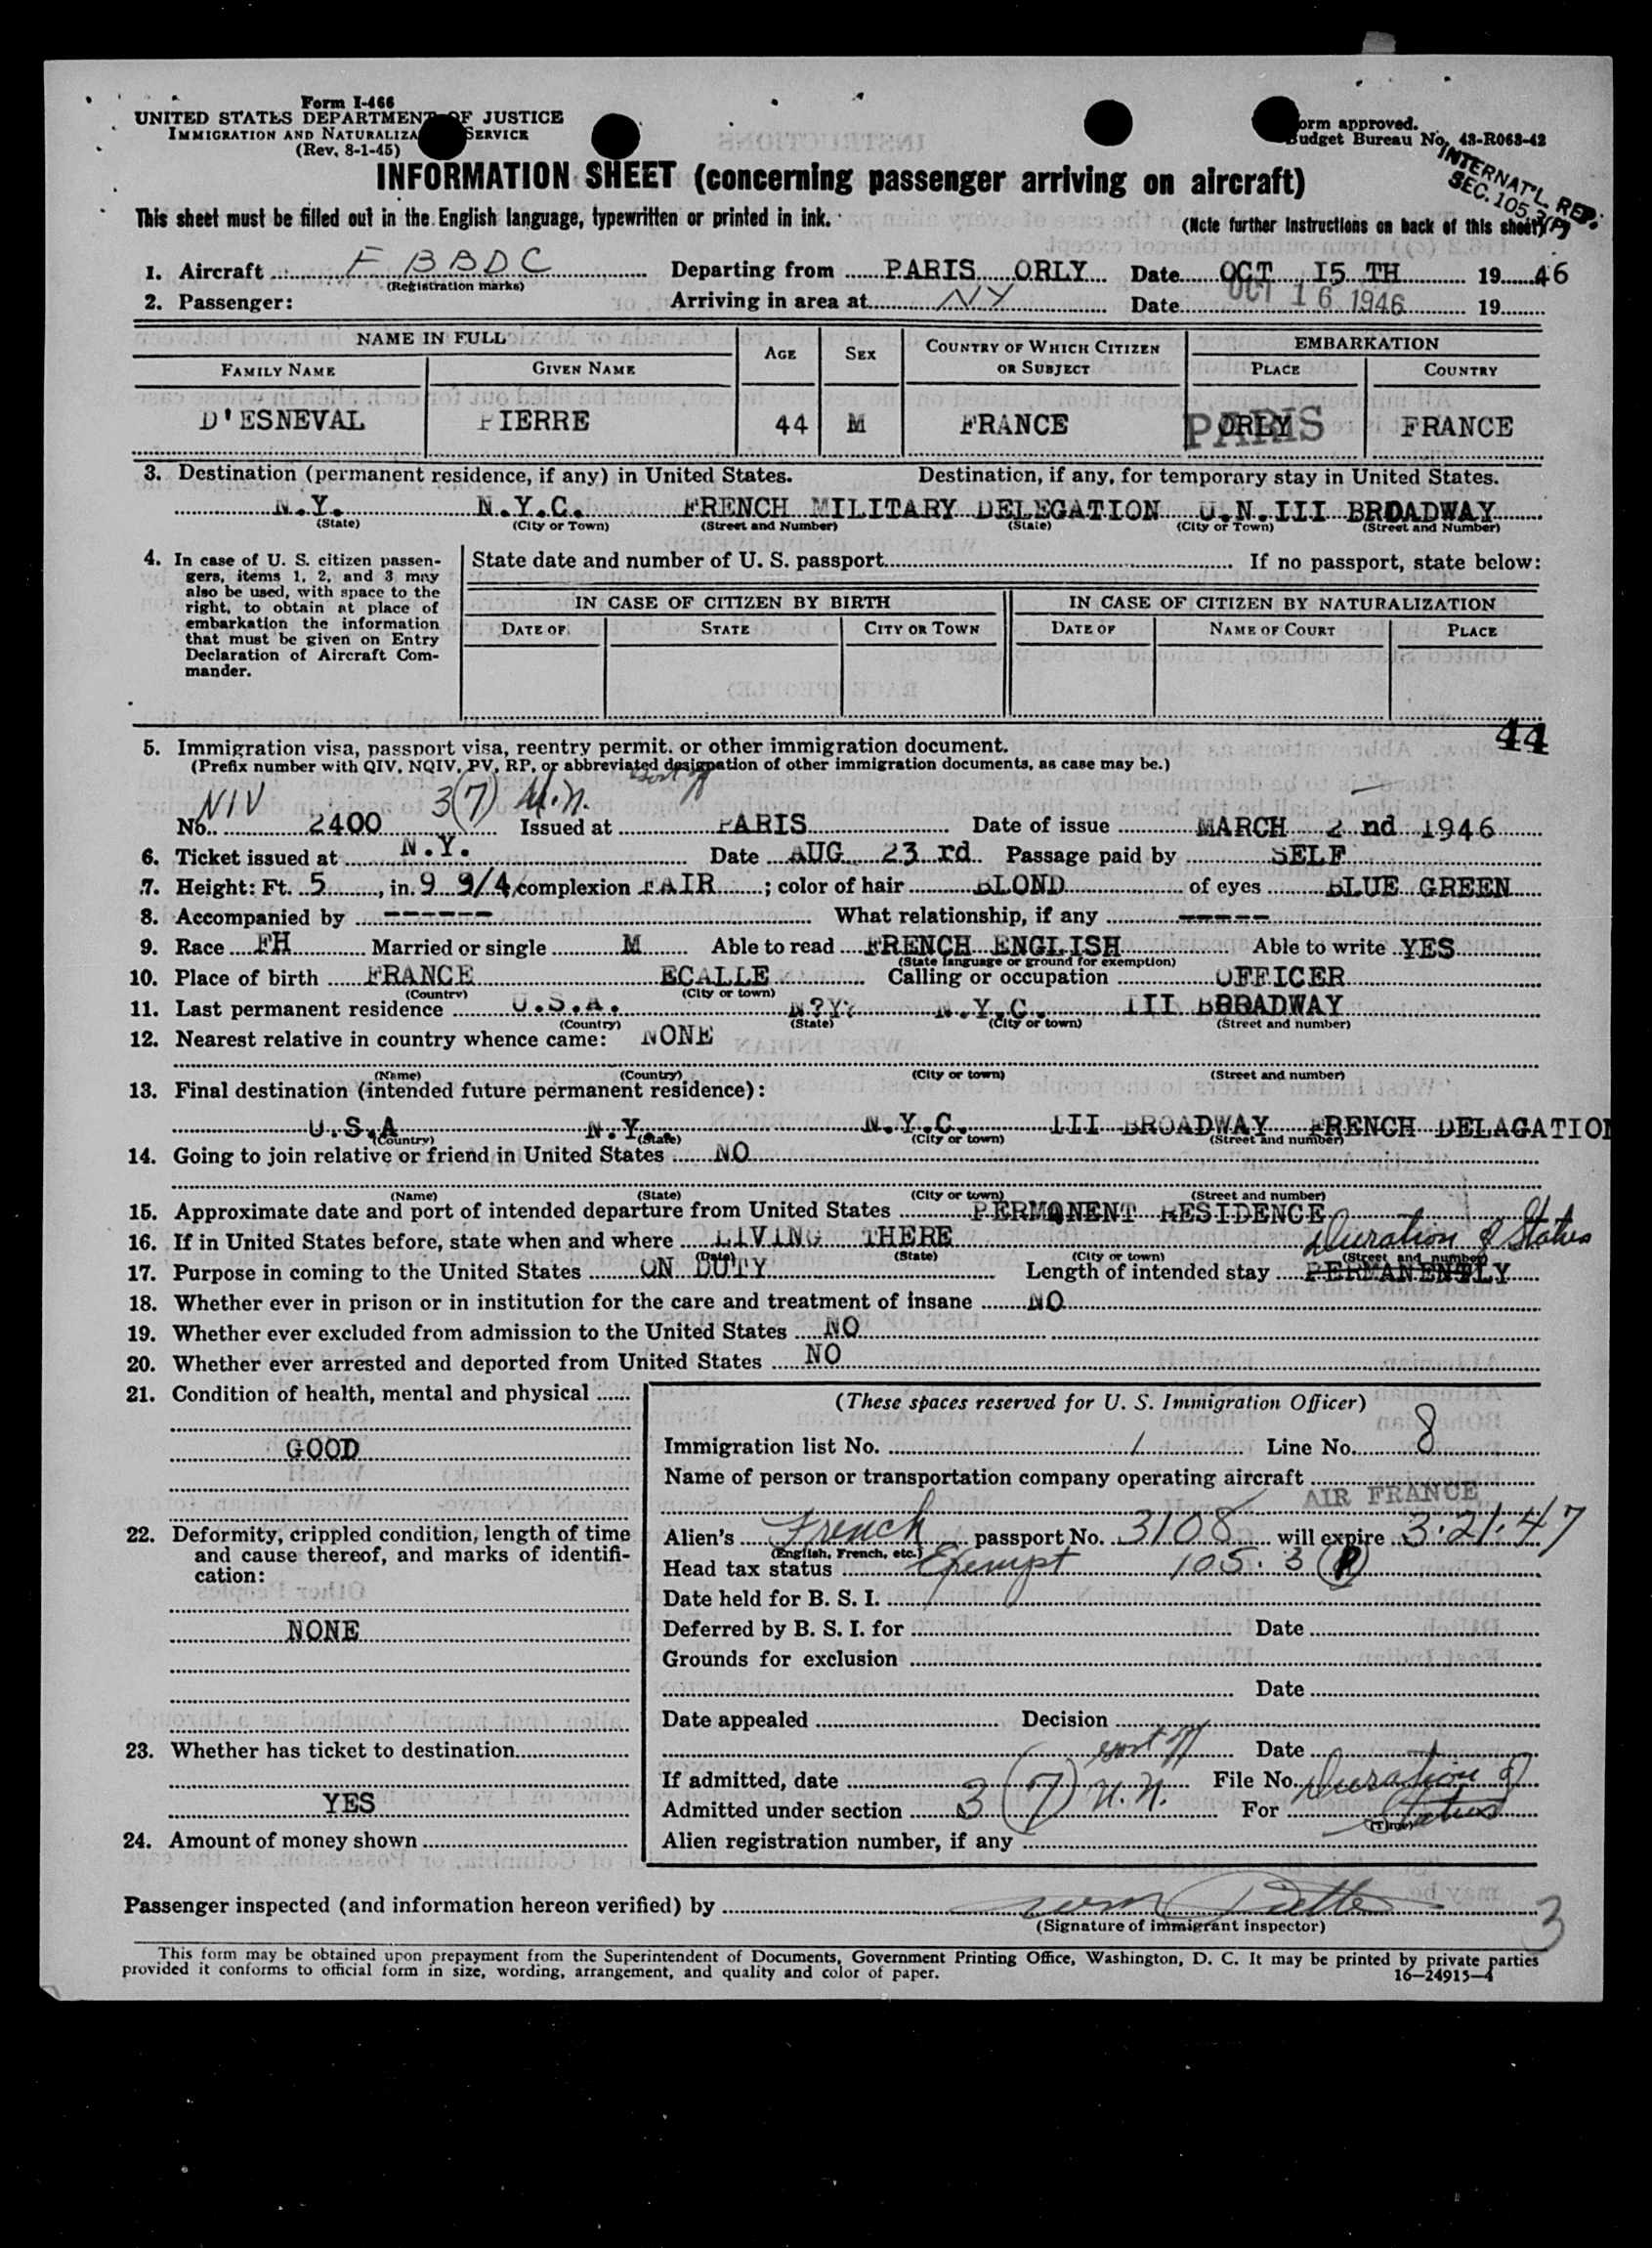 Form I-466
UNITED STATES DEPARTMENT OF JUSTICE
IMMIGRATION AND NATURALIZA SERVICE
(Rev. 8-1-45)
orm approved.
Budget Bureau No. 43-R063-42
INTERNAT'L. REP.
SEC. 105.3(P)
INFORMATION SHEET (concerning passenger arriving on aircraft)
This sheet must be filled out in the English language, typewritten or printed in ink.
(Note further instructions on back of this sheet)
1. Aircraft F BBDC Departing from PARIS ORLY Date OCT 15 TH 19 46
(Registration marks)
2. Passenger: Arriving in area at NY Date OCT 16 1946 19
NAME IN FULL AGE SEX COUNTRY OF WHICH CITIZEN OR SUBJECT EMBARKATION
FAMILY NAME GIVEN NAME PLACE COUNTRY
D'ESNEVAL PIERRE 44 M FRANCE ORLY PARIS FRANCE
3. Destination (permanent residence, if any) in United States. Destination, if any, for temporary stay in United States.
N.Y. N.Y.C. FRENCH MILITARY DELEGATION U.N. III BROADWAY
(State) (City or Town) (Street and Number) (State) (City or Town) (Street and Number)
4. In case of U. S. citizen passen-
gers, items 1, 2, and 3 may
also be used, with space to the
right, to obtain at place of
embarkation the information
that must be given on Entry
Declaration of Aircraft Com-
mander.
State date and number of U. S. passport If no passport, state below:
IN CASE OF CITIZEN BY BIRTH IN CASE OF CITIZEN BY NATURALIZATION
DATE OF STATE CITY OR TOWN DATE OF NAME OF COURT PLACE
44
5. Immigration visa, passport visa, reentry permit, or other immigration document.
(Prefix number with QIV, NQIV, PV, RP, or abbreviated designation of other immigration documents, as case may be.)
NIV 3(7)
No. 2400 Issued at PARIS Date of issue MARCH 2 nd 1946
6. Ticket issued at N.Y. Date AUG 23 rd Passage paid by SELF
7. Height: Ft. 5, in. 9 9/4, complexion FAIR; color of hair BLOND of eyes BLUE GREEN
8. Accompanied by ------ What relationship, if any -----
9. Race FH Married or single M Able to read FRENCH ENGLISH Able to write YES
(State language or ground for exemption)
10. Place of birth FRANCE ECALLE Calling or occupation OFFICER
(Country) (City or town)
11. Last permanent residence U.S.A. N?Y: N.Y.C. III BROADWAY
(Country) (State) (City or town) (Street and number)
12. Nearest relative in country whence came: NONE
(Name) (Country) (City or town) (Street and number)
13. Final destination (intended future permanent residence):
U.S.A N.Y. N.Y.C. III BROADWAY FRENCH DELAGATION
(Country) (State) (City or town) (Street and number)
14. Going to join relative or friend in United States NO
(Name) (State) (City or town) (Street and number)
15. Approximate date and port of intended departure from United States PERMANENT RESIDENCE
16. If in United States before, state when and where LIVING THERE Duration of Status
(Date) (State) (City or town) (Street and number)
17. Purpose in coming to the United States ON DUTY Length of intended stay PERMANENTLY
18. Whether ever in prison or in institution for the care and treatment of insane NO
19. Whether ever excluded from admission to the United States NO
20. Whether ever arrested and deported from United States NO
21. Condition of health, mental and physical
GOOD
22. Deformity, crippled condition, length of time
and cause thereof, and marks of identifi-
cation:
NONE
23. Whether has ticket to destination
YES
24. Amount of money shown
(These spaces reserved for U. S. Immigration Officer)
Immigration list No. 1 Line No. 8
Name of person or transportation company operating aircraft
AIR FRANCE
Alien's French passport No. 3108 will expire 3-21-47
(English, French, etc.)
Head tax status Exempt 105.3(P)
Date held for B. S. I.
Deferred by B. S. I. for Date
Grounds for exclusion
Date
Date appealed Decision
Date
If admitted, date File No. Duration of
Admitted under section 3(7) For Status
(Time)
Alien registration number, if any
Passenger inspected (and information hereon verified) by
(Signature of immigrant inspector)
3
This form may be obtained upon prepayment from the Superintendent of Documents, Government Printing Office, Washington, D. C. It may be printed by private parties
provided it conforms to official form in size, wording, arrangement, and quality and color of paper.
16—24915-4